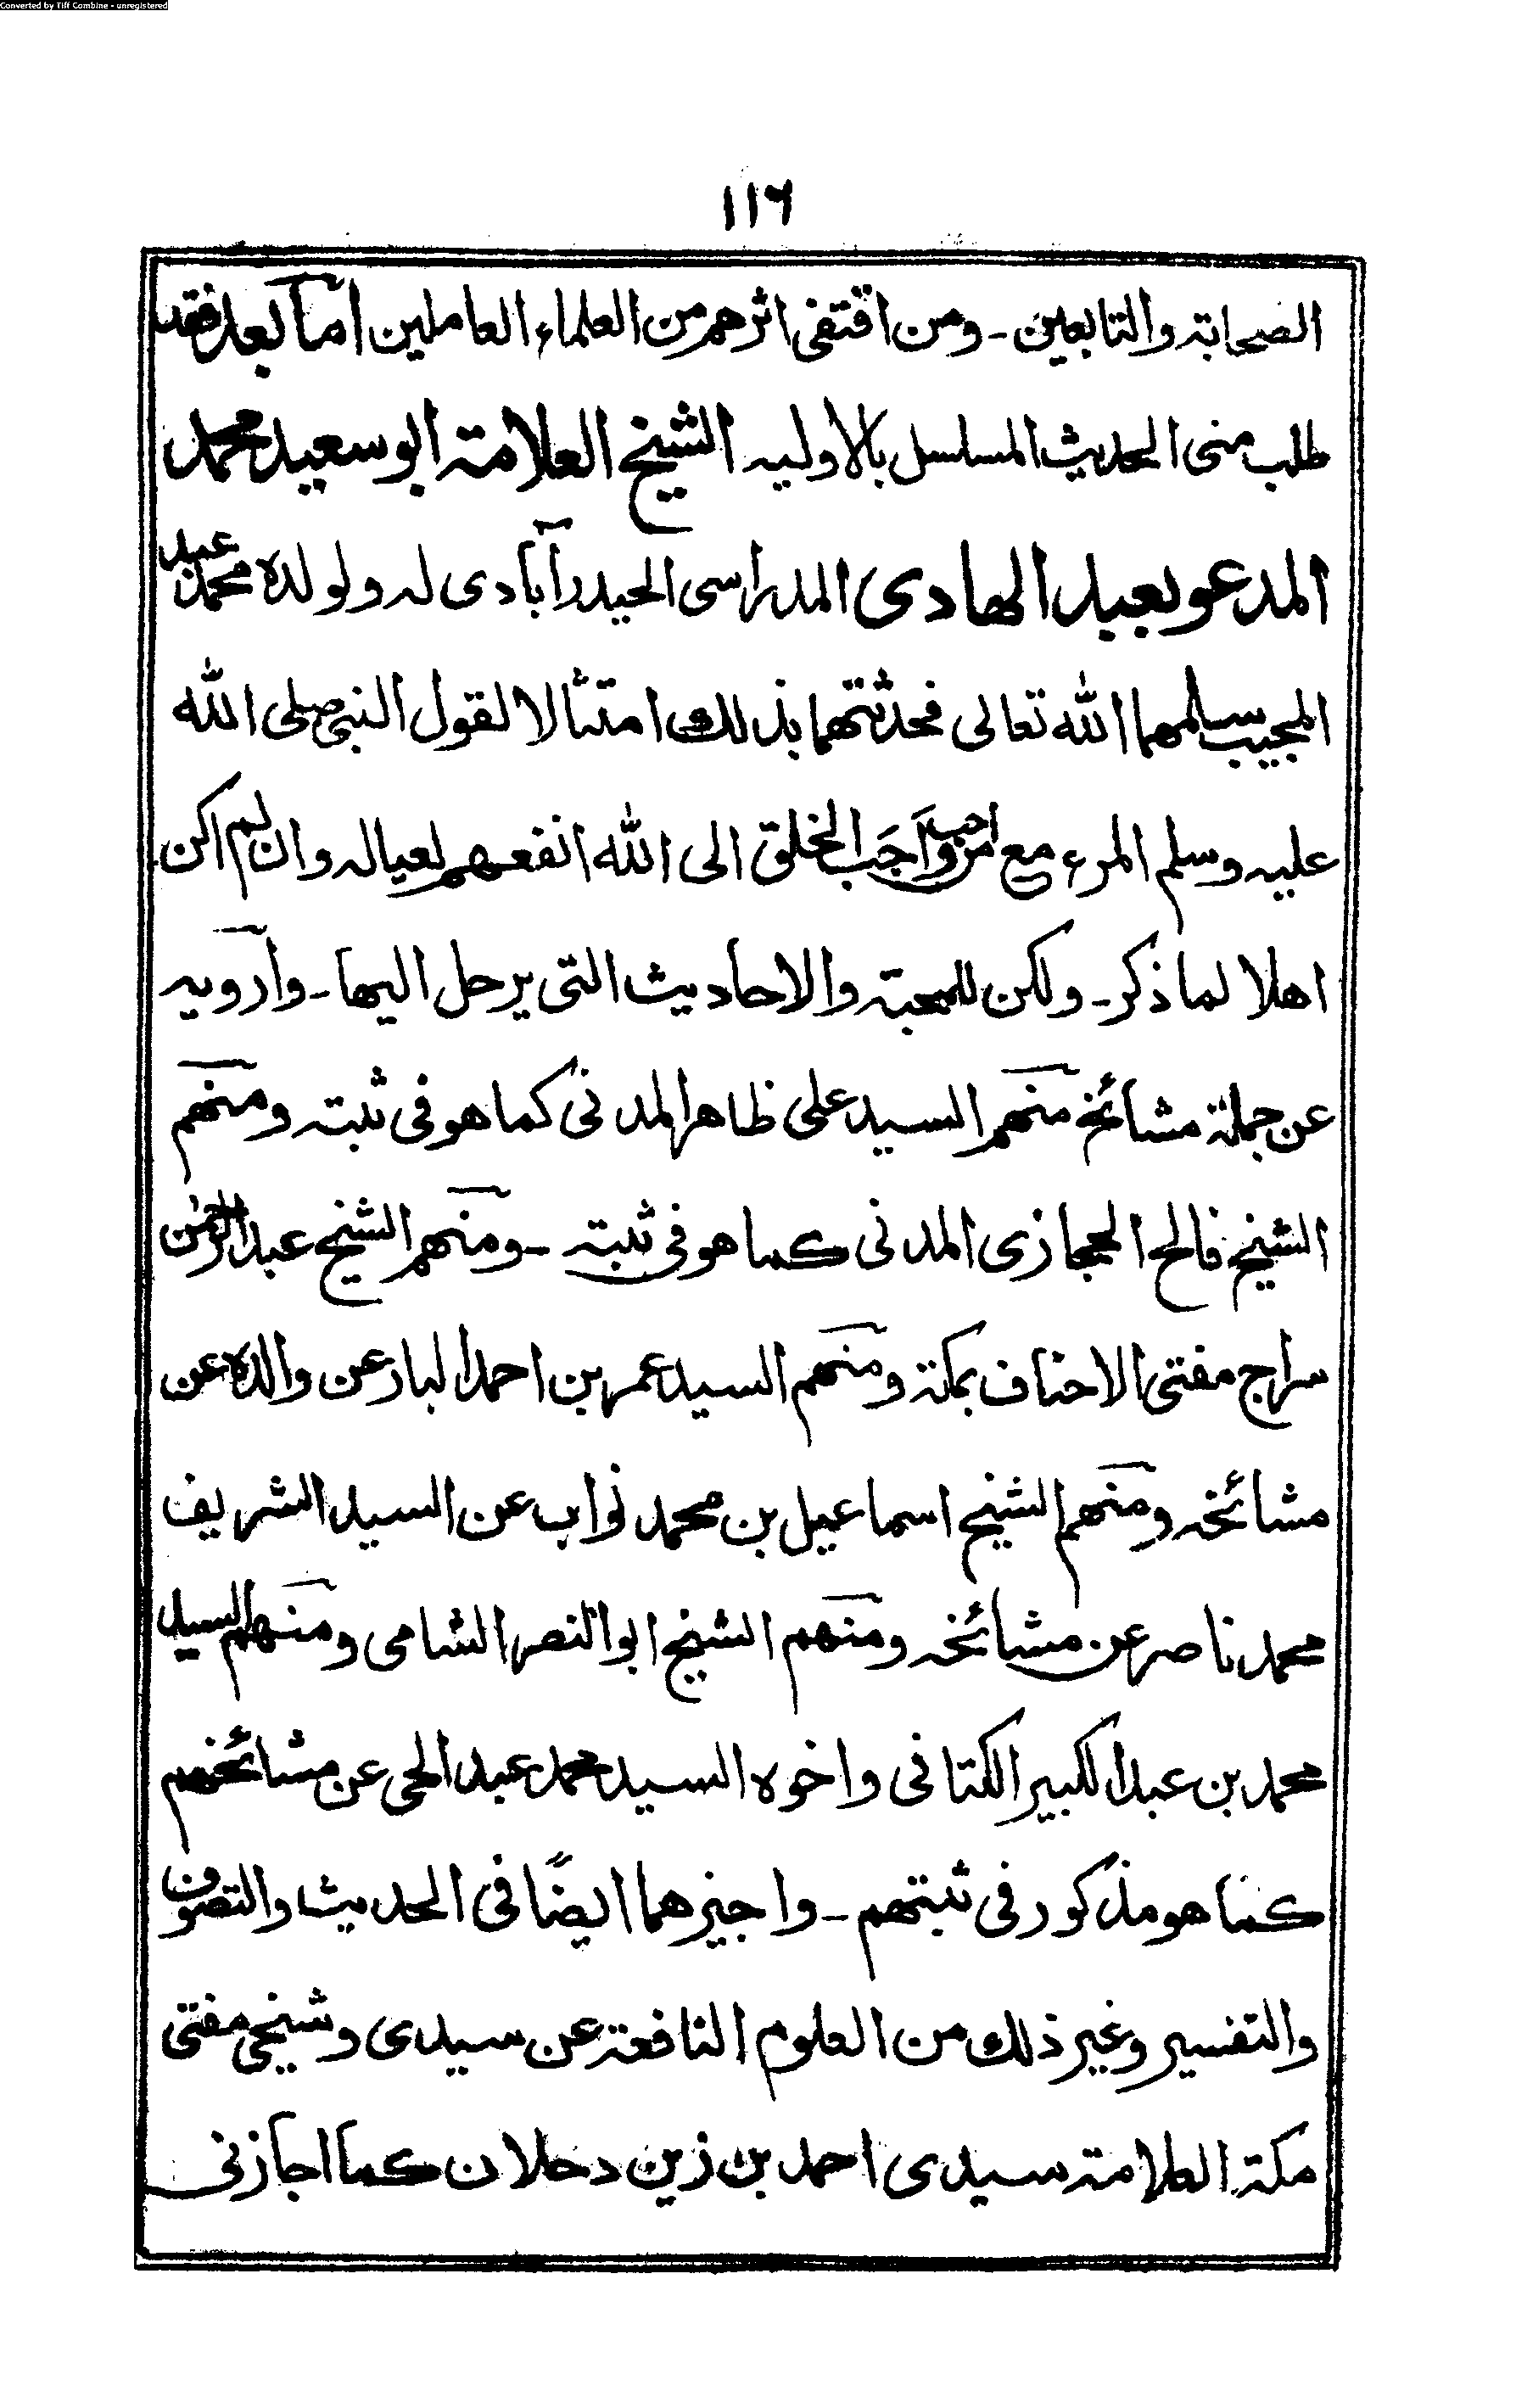 Converted by Tiff Combine - unregistered
١١٦
الصحابة والتابعين - ومن اقتفى اثرهم من العلماء العاملين اما بعد فقد
طلب منى الحديث المسلسل بالاوليه الشيخ العلامة ابو سعيد محمد
المدعو بعبد الهادى المدراسى الحيدرآبادى له ولولده محمد عبد
المجيب سلمهما الله تعالى فحدثتهما بذلك امتثالا لقول النبى صلى الله
عليه وسلم المرء مع من احب واحب الخلق الى الله انفعهم لعياله وان لم اكن
اهلا لما ذكر - ولكن للمحبة والاحاديث التى يرحل اليها - وارويه
عن جملة مشائخ منهم السيد على ظاهر المدنى كما هو فى ثبته ومنهم
الشيخ فالح الحجازى المدنى كما هو فى ثبته - ومنهم الشيخ عبد الرحمن
سراج مفتى الاحناف بمكة ومنهم السيد عمر بن احمد البار عن والده عن
مشائخه ومنهم الشيخ اسماعيل بن محمد نواب عن السيد الشريف
محمد ناصر عن مشائخه ومنهم الشيخ ابو النصر الشامى ومنهم السيد
محمد بن عبد الكبير الكتانى واخوه السيد محمد عبد الحى عن مشائخهم
كما هو مذكور فى ثبتهم - واجيزهما ايضًا فى الحديث والتصوف
والتفسير وغير ذلك من العلوم النافعة عن سيدى وشيخى مفتى
مكة العلامة سيدى احمد بن زين دحلان كما اجازنى